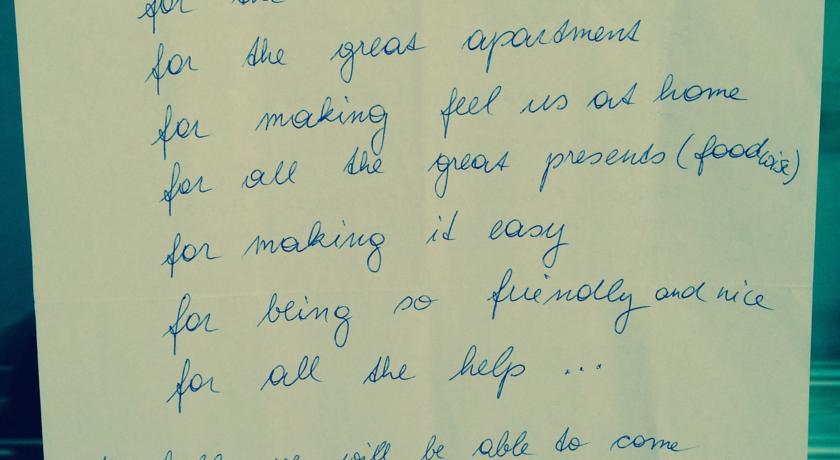 for the
for the great apartment
for making feel us at home
for all the great presents (foodwise)
for making it easy
for being so friendly and nice
for all the help ...
will be able to come